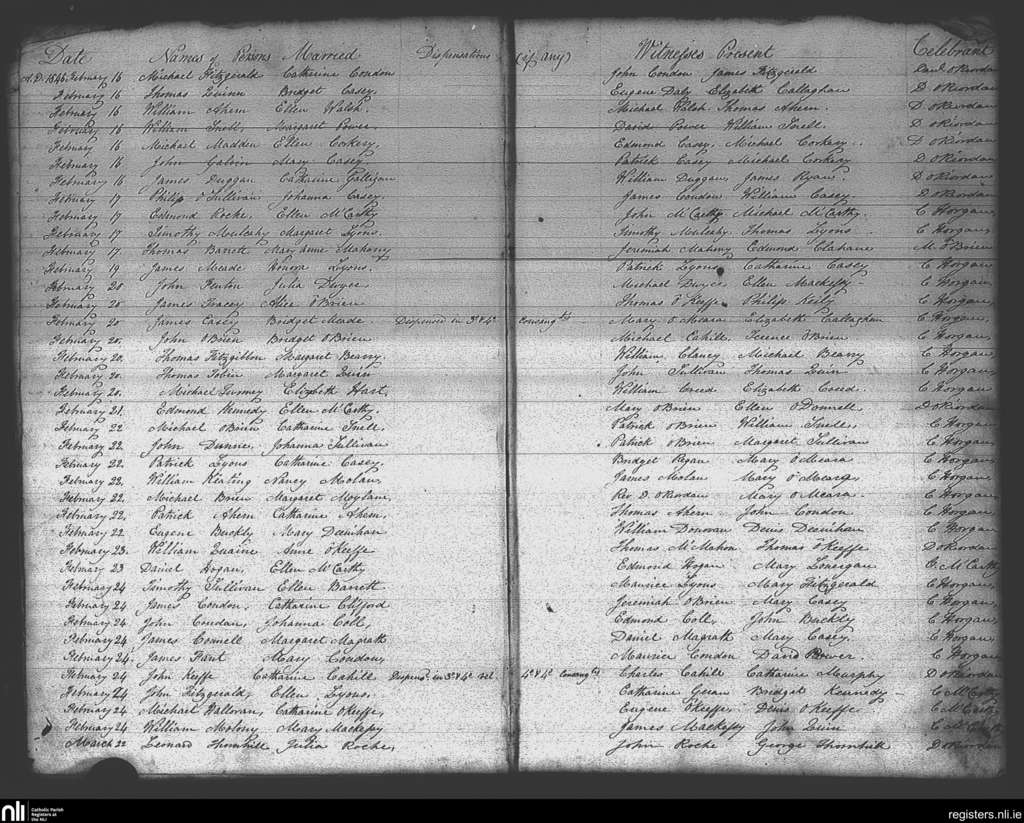 Date Names of Persons Married Dispensations (if any) Witnesses Present Celebrant
A.D. 1846 February 16 Michael Fitzgerald Catherine Condon John Condon James Fitzgerald Danl. O'Riordan
February 16 Thomas Quinn Bridget Casey Eugene Daly Elizabeth Callaghan D O'Riordan
February 16 William Ahern Ellen Walsh Michael Walsh Thomas Ahern D O'Riordan
February 16 William Snell Margaret Power David Power William Snell D O'Riordan
February 16 Michael Madden Ellen Corkery Edmond Casey Michael Corkery D O'Riordan
February 16 John Galvin Mary Casey Patrick Casey Michael Corkery D O'Riordan
February 16 James Duggan Catharine William Duggan James Ryan D O'Riordan
February 17 Philip O'Sullivan Johanna Casey James Condon William Casey D O'Riordan
February 17 Edmond Roche Ellen McCarthy John McCarthy Michael McCarthy C Horgan
February 17 Timothy Mulcahy Margaret Lyons Timothy Mulcahy Thomas Lyons C Horgan
February 17 Thomas Barrett Mary Anne Mahony Jeremiah Mahony Edmond Clahane M O'Brien
February 19 James Meade Honora Lyons Patrick Lyons Catharine Casey C Horgan
February 20 John Fenton Julia Dwyer Michael Dwyer Ellen Mackessy C Horgan
February 20 James Tracey Alice O'Brien Thomas O'Keeffe Philip Keily C Horgan
February 20 James Casey Bridget Meade Dispensed in 3° & 4° Consangtis Mary O'Meara Elizabeth Callaghan C Horgan
February 20 John O'Brien Bridget O'Brien Michael Cahill Terence O'Brien C Horgan
February 20 Thomas Fitzgibbon Margaret Beary William Clancy Michael Beary C Horgan
February 20 Thomas Tobin Margaret Quin John Sullivan Thomas Quin C Horgan
February 20 Michael Twomey Elizabeth Hart William Creed Elizabeth Creed C Horgan
February 21 Edmond Kennedy Ellen McCarthy Mary O'Brien Ellen O'Donnell D O'Riordan
February 22 Michael O'Brien Catharine Snell Patrick O'Brien William Snell C Horgan
February 22 John Johanna Sullivan Patrick O'Brien Margaret Sullivan C Horgan
February 22 Patrick Lyons Catharine Casey Bridget Regan Mary O'Meara C Horgan
February 22 William Keating Nancy Molan James Molan Mary O'Meara C Horgan
February 22 Michael Brien Margaret Moylan Rev D. O'Riordan Mary O'Meara C Horgan
February 22 Patrick Ahern Catharine Ahern Thomas Ahern John Condon C Horgan
February 22 Eugene Buckly Mary Deenihan William Donovan Denis Deenihan C Horgan
February 23 William Quaine Anne O'Keeffe Thomas McMahon Thomas O'Keeffe D O'Riordan
February 23 Daniel Hogan Ellen McCarthy Edmond Hogan Mary Lonergan McCarthy
February 24 Timothy Sullivan Ellen Barrett Maurice Lyons Mary Fitzgerald C Horgan
February 24 James Condon Catharine Clifford Jeremiah O'Brien Mary Casey C Horgan
February 24 John Condon Johanna Coll Edmond Coll John Buckly C Horgan
February 24 James Connell Margaret Magrath Daniel Magrath Mary Casey C Horgan
February 24 James Fant Mary Condon Maurice Condon David Power C Horgan
February 24 John Keeffe Catharine Cahill Dispensd. in 3° & 4° vel 4° & 4° Consangtis Charles Cahill Catharine Murphy D O'Riordan
February 24 John Fitzgerald Ellen Lyons Catharine Bridget Kennedy C McCarthy
February 24 Michael Halloran Catharine O'Keeffe Eugene O'Keeffe Denis O'Keeffe C McCarthy
February 24 William Molony Mary Mackessy James Mackessy John Quin C McCarthy
March 22 Leonard Thornhill Julia Roche John Roche George Thornhill D O'Riordan
nli Catholic Parish Registers at the NLI registers.nli.ie